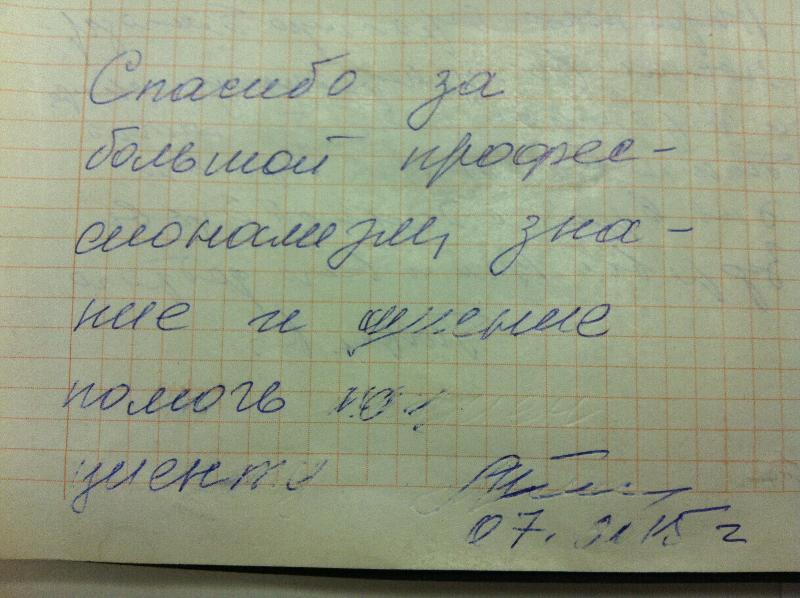 Спасибо за
большой профес-
сионализм, зна-
ние и умение
помочь
циенту
07. 01 15 г